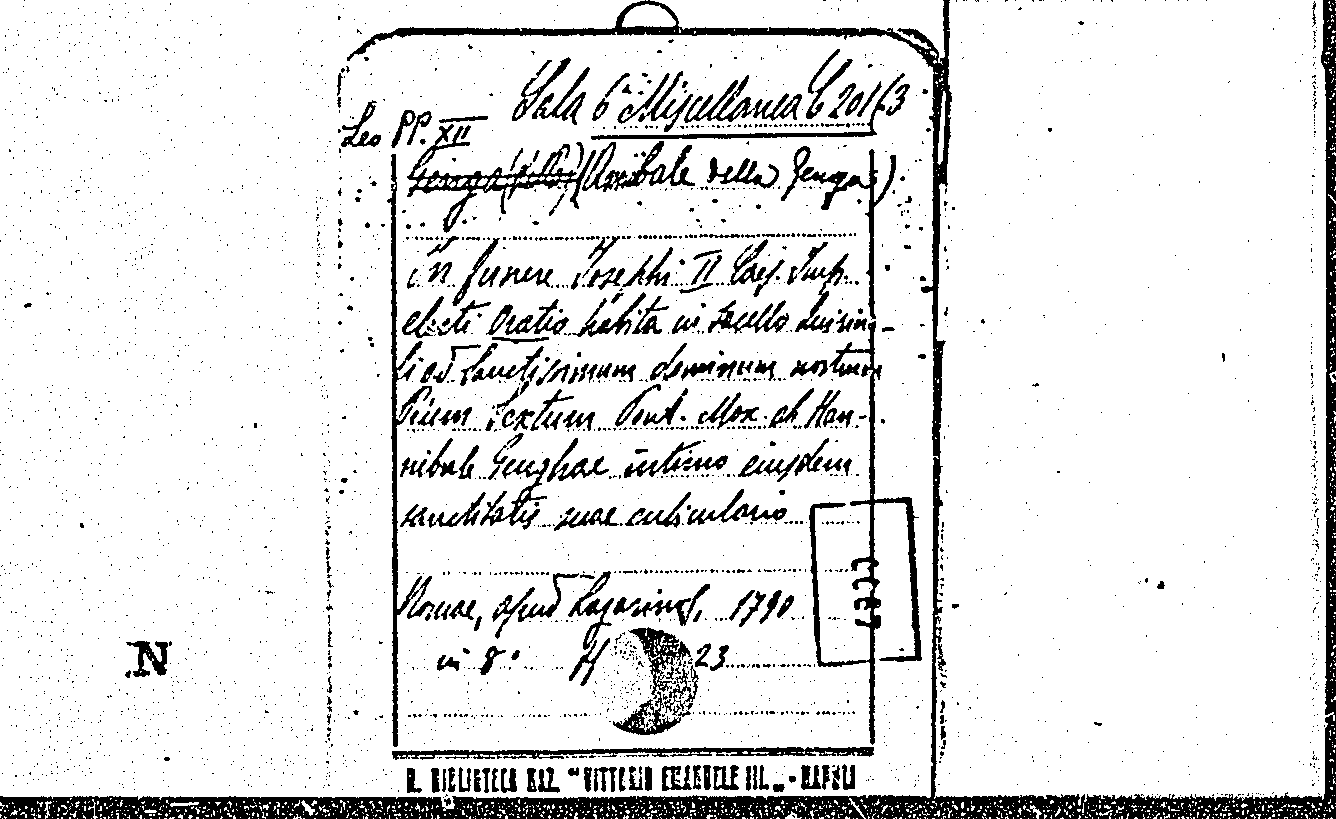 Sala 6ª Miscellanea C 20163
Leo PP. XII
Genga (Annibale della Genga)
In funere Josephi II Caes. Imp.
electi Oratio habita in sacello Quirina-
li ad Sanctissimum dominum nostrum
Pium Sextum Pont. Max. ab Han-
nibale Genghae intimo eiusdem
sanctitatis suae cubiculario
Romae, apud Lazarinos, 1790
in 8° 23
N
R. BIBLIOTECA NAZ. "VITTORIO EMANUELE III„ - NAPOLI